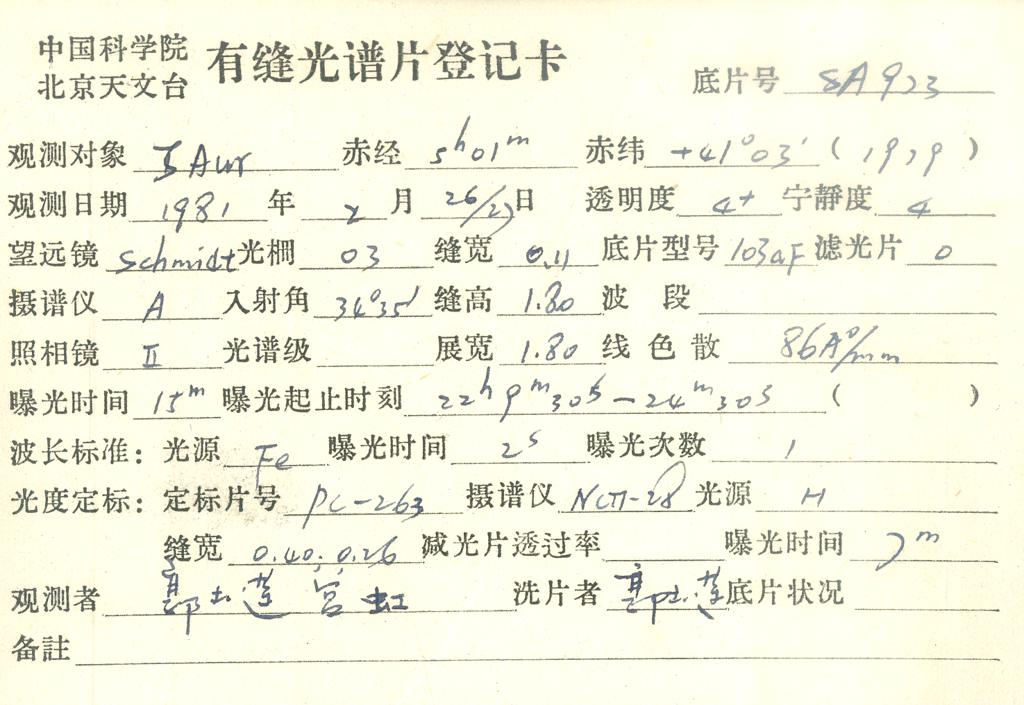 中国科学院
北京天文台
有缝光谱片登记卡
底片号 SA923
观测对象 ζ Aur 赤经 5h01m 赤纬 +41°03′ (1979)
观测日期 1981 年 2 月 26/27 日 透明度 4+ 宁静度 4
望远镜 Schmidt 光栅 03 缝宽 0.11 底片型号 103aF 滤光片 0
摄谱仪 A 入射角 34°35′ 缝高 1.80 波 段
照相镜 II 光谱级 展宽 1.80 线 色 散 86A°/mm
曝光时间 15m 曝光起止时刻 22h9m30s-24m30s ( )
波长标准: 光源 Fe 曝光时间 2s 曝光次数 1
光度定标: 定标片号 PC-263 摄谱仪 光源 H
缝宽 0.40, 0.26 减光片透过率 曝光时间 7m
观测者 莲 宫虹 洗片者 莲 底片状况
备註